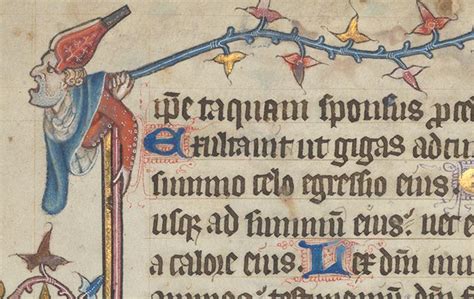 ip̄e taquam sponsus proce
Exultauit ut gigas ad cu
summo celo egressio eius
usq; ad summū eius: nec e
a calore eius Lex dn̄i im